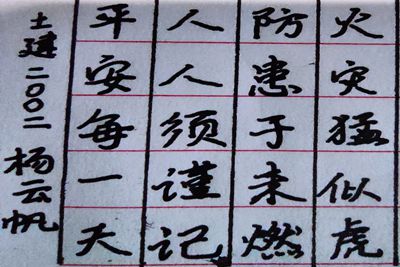 火灾猛似虎
防患于未燃
人人须谨记
平安每一天
土建二〇〇二 杨云帆